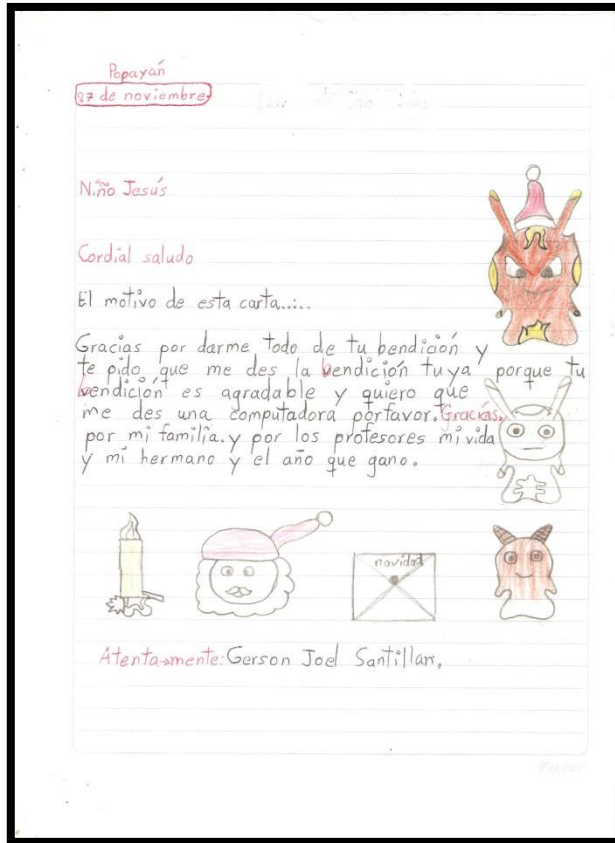 Popayán
27 de noviembre
Niño Jesús
Cordial saludo
El motivo de esta carta.....
Gracias por darme todo de tu bendición y
te pido que me des la vendición tuya porque tu
vendición es agradable y quiero que
me des una computadora porfavor. Gracias.
por mi familia. y por los profesores mi vida
y mi hermano y el año que gano.
navidad
Atenta-mente: Gerson Joel Santillan.